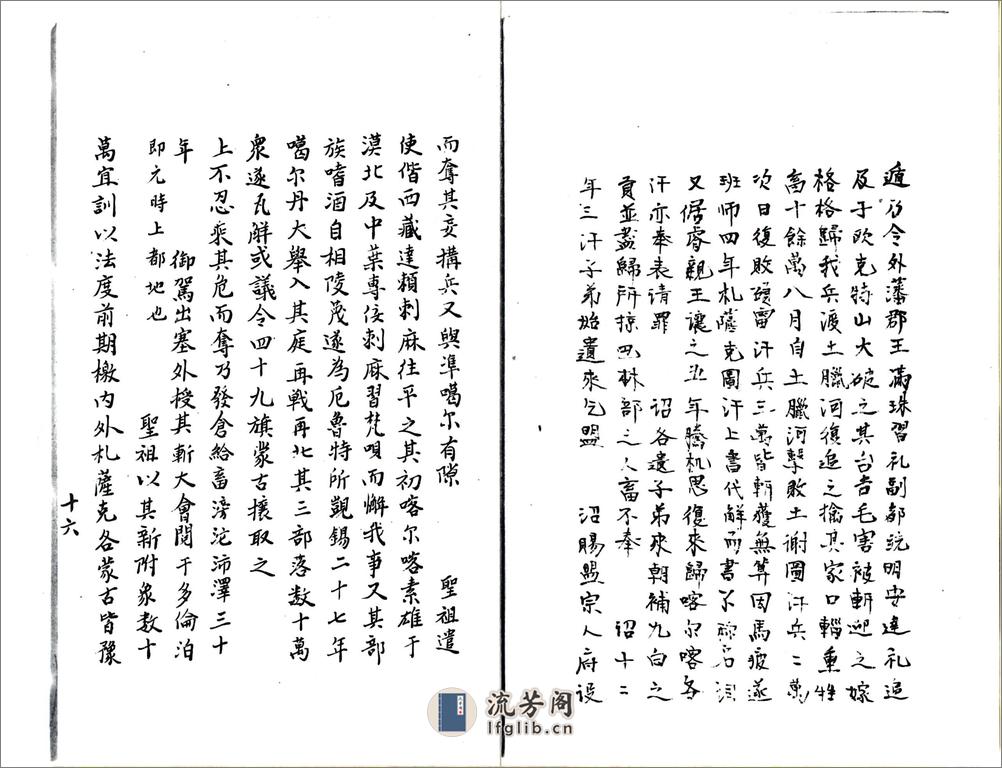 遁乃令外藩郡王滿珠習礼副都统明安達礼追
及于欧克特山大破之其台吉毛害被斬迎之嫁
格格歸我兵渡土臘河復追之擒其家口輜重牲
畜十餘萬八月自土臘河擊敗土谢圖汗兵二萬
次日復敗碩雷汗兵三萬皆斬獲無算因馬疲遂
班师四年札薩克圖汗上書代解而書不称名詞
又倨睿親王讓之五年腾机思復來歸喀尔喀各
汗亦奉表请罪 诏各遣子弟來朝補九白之
貢並盡歸所掠巴林部之人畜不奉 诏十二
年三汗子弟始遣來乞盟 诏賜盟宗人府设
而奪其妾搆兵又與準噶尔有隙 聖祖遣
使偕西藏達頼剌麻往平之其初喀尔喀素雄于
漠北及中葉專佞剌麻習梵唄而懈戎事又其部
族嗜酒自相陵蔑遂為厄魯特所覬锡二十七年
噶尔丹大舉入其庭再戦再北其三部落数十萬
衆遂瓦解或議令四十九旗蒙古攘取之
上不忍乘其危而奪乃發倉給畜滂沱沛澤三十
年 御駕出塞外授其斬大會閱于多倫泊
即元時上都地也 聖祖以其新附衆数十
萬宜訓以法度前期檄内外札薩克各蒙古皆豫
十六
流芳阁
lfglib.cn